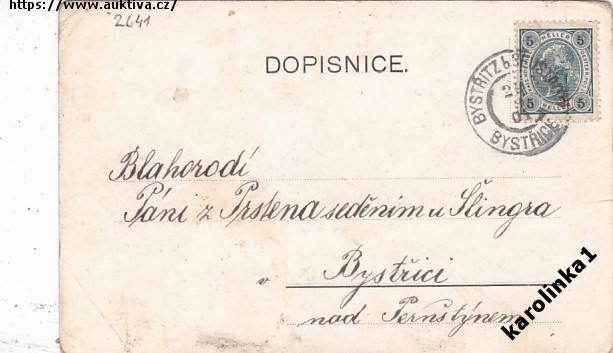 https://www.auktiva.cz/
2641
DOPISNICE.
5 HELLER 5
5 HELLER 5
BYSTRITZ
BYSTŘICE
Blahorodí
Páni z Prstena seděním u Šlingra
v Bystřici
nad Pernštýnem
karolinka1